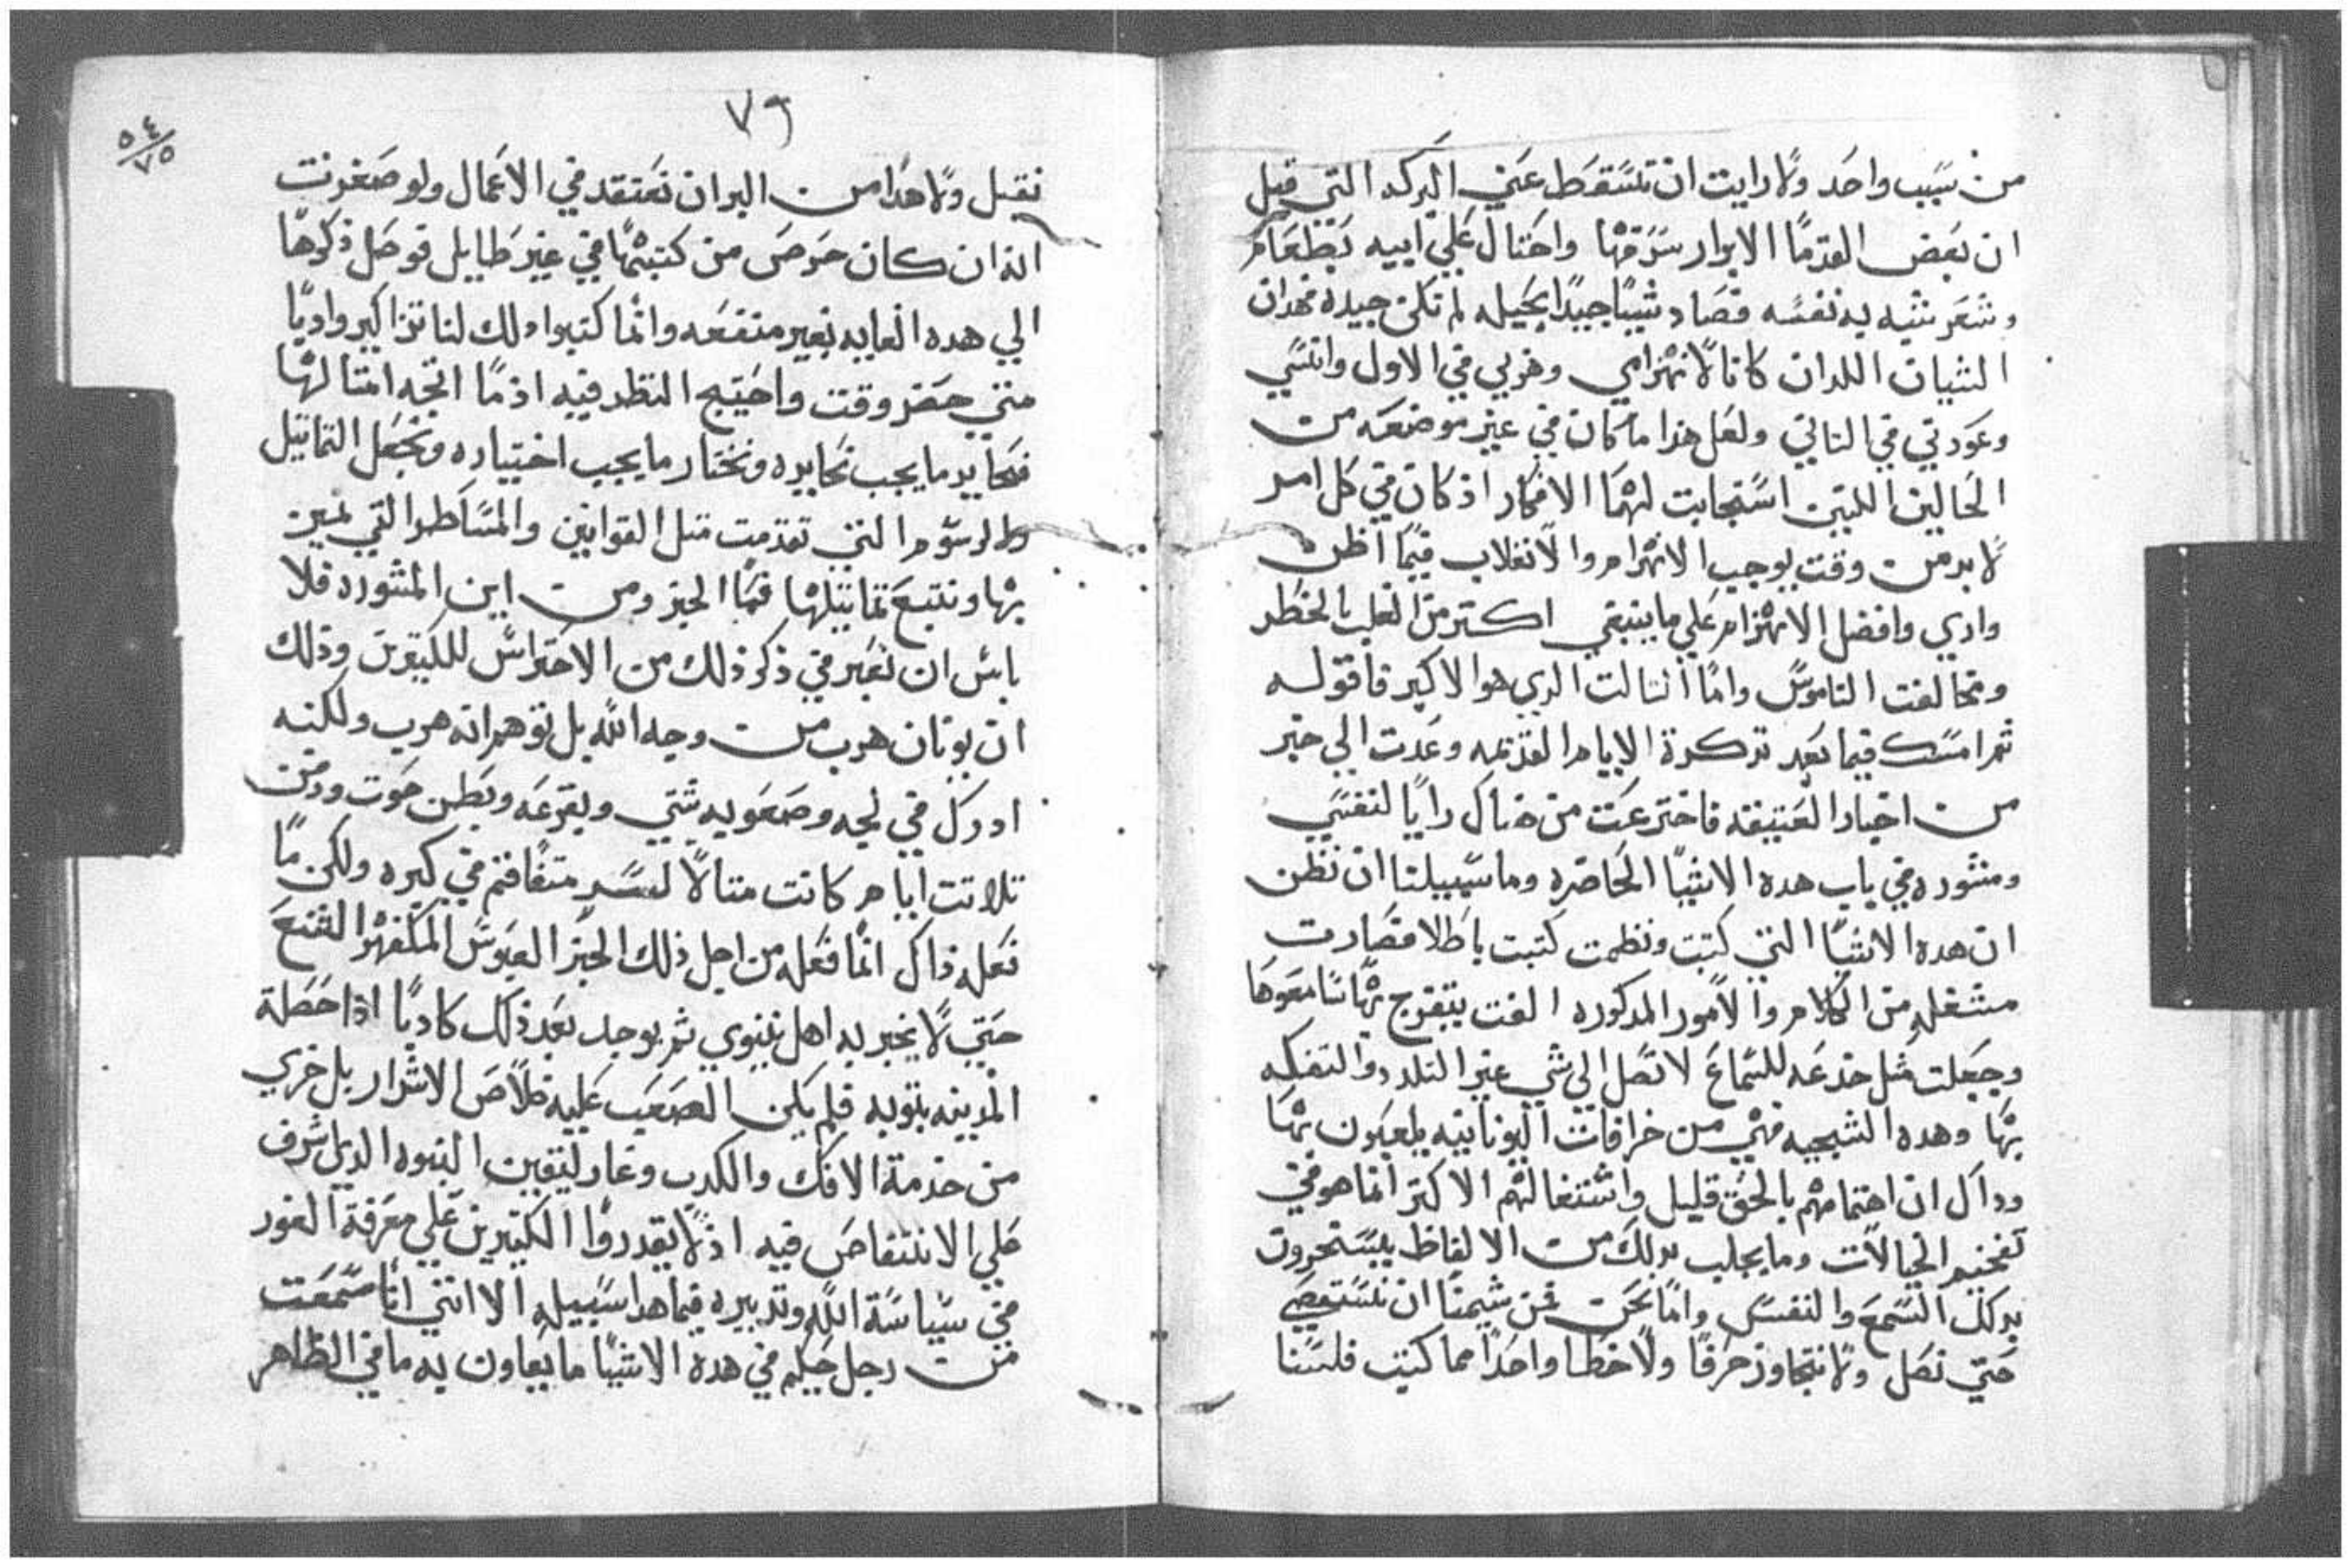 من سبب واحد ولا رايت ان تسقط عني البركه التي قيل
ان بعض القدما الابرار سرقها واحتال علي ابيه بطعام
وشعر شبه به نفسه فصاد شيا جيدا بحيله لم تكن جيده فهدان
الشيان اللدان كانا لانهزامي وهربي في الاول وانسي
وعودتي في التاني ولعل هذا ما كان في غير موضعه من
الحالين اللتين استجابت لهما الافكار اذ كان في كل امر
لا بد من وقت يوجب الانهزام والانغلاب فيما اظن
واري وافضل الانهزام علي ما ينبغي اكتر من الغلب بالخطر
ومخالفت الناموس واما التالت الدي هو الاكبر فاقوله
ثم امسك فيما بعد تدكرة الايام القديمه وعدت الي خبر
من اخبار العتيقه فاخترعت من هناك رايا لنفسي
ومشوره في باب هده الاشيا الحاضره وما سبيلنا ان نظن
ان هده الاشيا التي كتبت ونظمت كتبت باطلا فصارت
مشغله من الكلام والامور المدكوره الفت يتفرج بها سامعوها
وجعلت مثل خدعه للسماع لا تصل الي شي غير التلدد والتفكه
بها وهده الشجيه فهي من خرافات اليونانيه يلعبون بها
وداك ان اهتمامهم بالحق قليل واشتغالهم الاكتر انما هو في
تفخيم الخيالات وما يجلب بدلك من الالفاظ يستسحرون
بدلك السمع والنفس واما نحن فمن شيمنا ان نستقصي
حتي نصل ولا نتجاوز حرفا ولا خطا واحدا مما كتب فلسنا
٧٩
٥٤/٧٥
نقبل ولا هدا من البران نعتقد في الاعمال ولو صغرت
انه ان كان حرص من كتبتها في غير طايل فوصل ذكرها
الي هده الغايه بغير منفعه وانما كتبوا دلك لنا تزاكير واديا
متي حضر وقت واحتيج النظر فيه اذ ما اتجه امتالها
فنحايد ما يجب نحايده ونختار ما يجب اختياره ونجعل التماتيل
والرسوم التي تقدمت مثل القوانين والمساطر التي نميز
بها ونتبع تماتيلها فما الخبر ومن اين المشوره فلا
باس ان نعبر في ذكر ذلك من الاحتراس للكتيرين وذلك
ان يونان هرب من وجه الله بل توهم انه هرب ولكنه
ادرك في لجه وصعوبه شتي وبقرعه وبطن حوت ودفن
تلاتت ايام كانت متالا لسر متفاقم في كبره ولكن ما
فعله ذاك انما فعله من اجل ذلك الخبر العبوس المكفهر الشنع
حتي لا يخبر به اهل نينوي ثم يوجد بعد ذلك كادبا اذا حضلة
المدينه بتوبه فلم يكن الصعب عليه خلاص الاشرار بل خزي
من خدمة الافك والكدب وغار ليقين النبوه الدي شرف
علي الانتقاص فيه اذ لا يقدروا الكتيرين علي معرفة الغور
في سياسة الله وتدبيره فيما هدا سبيله الا انني انا سمعت
من رجل حكيم في هده الاشيا ما يعاون به ما في الظاهر